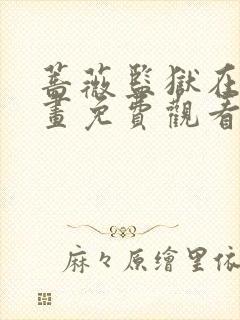 蔷薇監獄在
畫免費觀看
麻々原繪里依